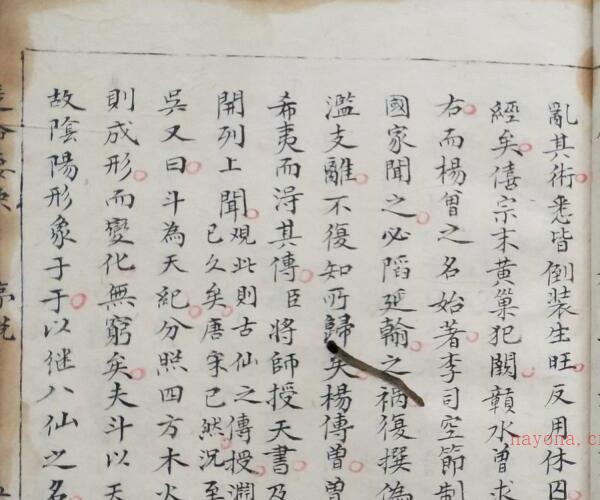 亂其術悉皆倒裝生旺反用休囚
經矣僖宗末黃巢犯闕贛水曾求
右而楊曾之名始著李司空節制
國家聞之必蹈延翰之禍復撰偽
濫支離不復知所歸矣楊傳曾曾
希夷而淂其傳臣將師授天書及
開列上聞觀此則古仙之傳授淵
已久矣唐宋已然況至
吳又曰斗為天紀分照四方木火
則成形而變化無窮矣夫斗以天
故陰陽形象于于以继八仙之名
hayona.c